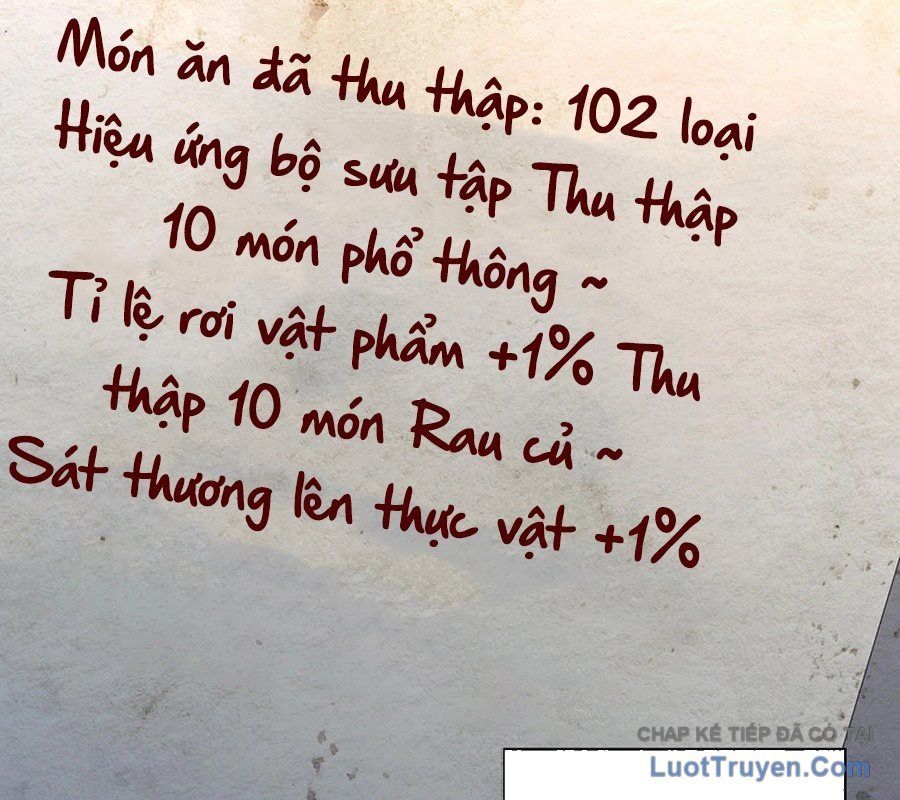 Món ăn đã thu thập: 102 loại
Hiệu ứng bộ sưu tập Thu thập
10 món phổ thông ~
Tỉ lệ rơi vật phẩm +1% Thu
thập 10 món Rau củ ~
Sát thương lên thực vật +1%
CHAP KẾ TIẾP ĐÃ CÓ TẠI
LuotTruyen.Com